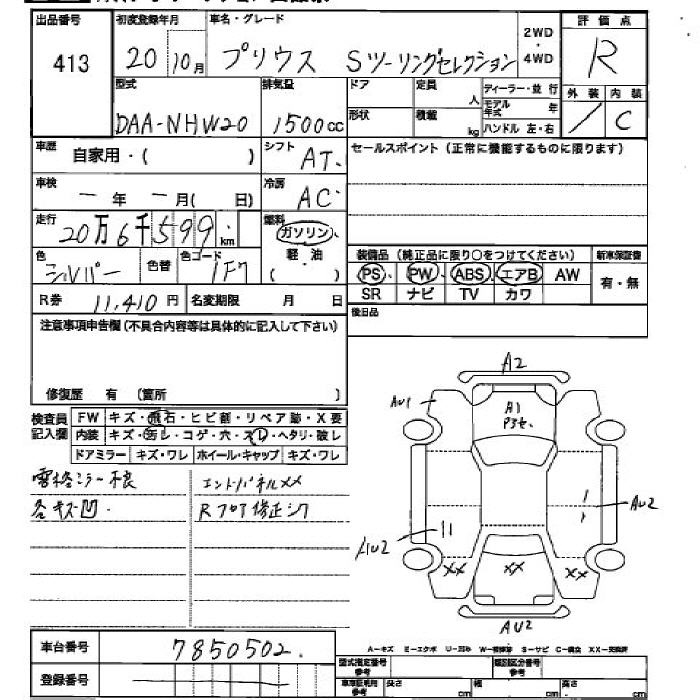 出品番号 初度登録年月 車名・グレード 2WD・4WD 評価点
413 20 10月 プリウス Sツーリングセレクション R
型式 排気量 ドア 定員 人 ディーラー・並行 外装 内装
DAA-NHW20 1500cc 形状 積載 kg モデル年式 年 / C
ハンドル 左・右
車歴 自家用・( ) シフト AT. セールスポイント(正常に機能するものに限ります)
車検 ー年 ー月( 日) 冷房 AC.
走行 20万6千599km 燃料 ガソリン、軽・油 ( )
装備品(純正品に限り○をつけてください) 新車保証書
色 シルバー 色替 色コード 1F7
PS、 PW、 ABS、 エアB AW 有・無
SR ナビ TV カワ
R券 11,410円 名変期限 月 日
後日品
注意事項申告欄(不具合内容等は具体的に記入して下さい)
修復歴 有 (箇所 )
検査員記入欄 FW キズ・飛石・ヒビ割・リペア跡・X要
内装 キズ・汚レ・コゲ・穴・スレ・ヘタリ・破レ
ドアミラー キズ・ワレ ホイール・キャップ キズ・ワレ
A2
AU1
A1
P3セ.
雷格ミラー不良 エンドパネルXX
各キズ凹 Rフロア修正シワ
AU2
AU2
XX XX XX
AU2
車台番号 7850502.
A-キズ E-エクボ U-凹み W-補修跡 S-サビ C-腐食 XX-交換済
登録番号
型式指定番号参考 類別区分番号参考
車車証明用参考 長さ cm 幅 cm 高さ cm